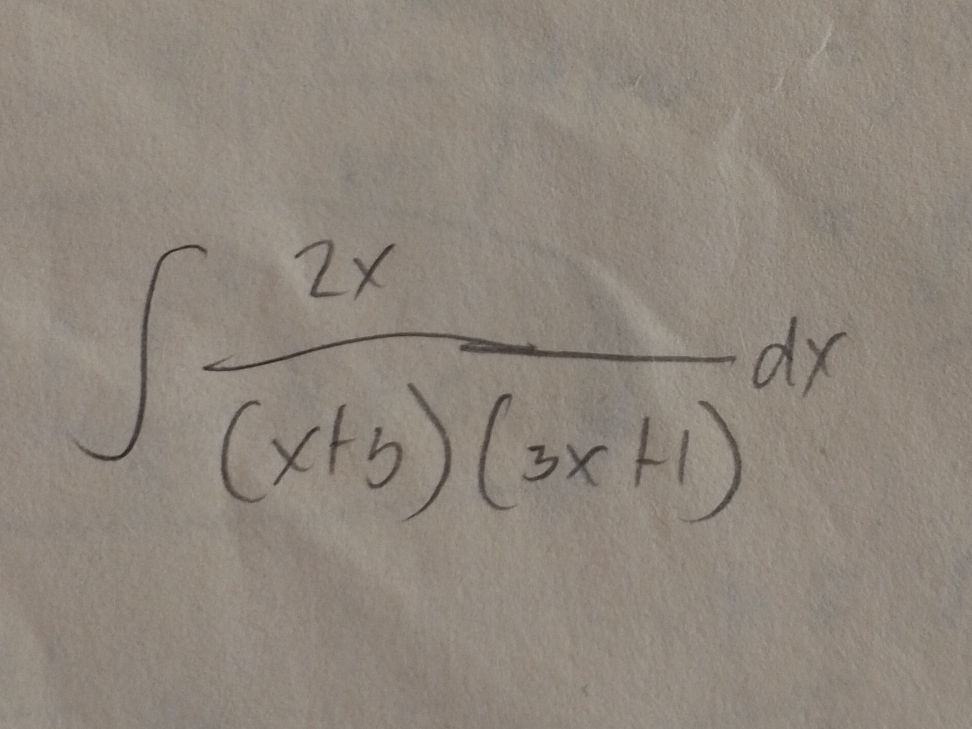 ∫ 2x / (x+5)(3x+1) dx